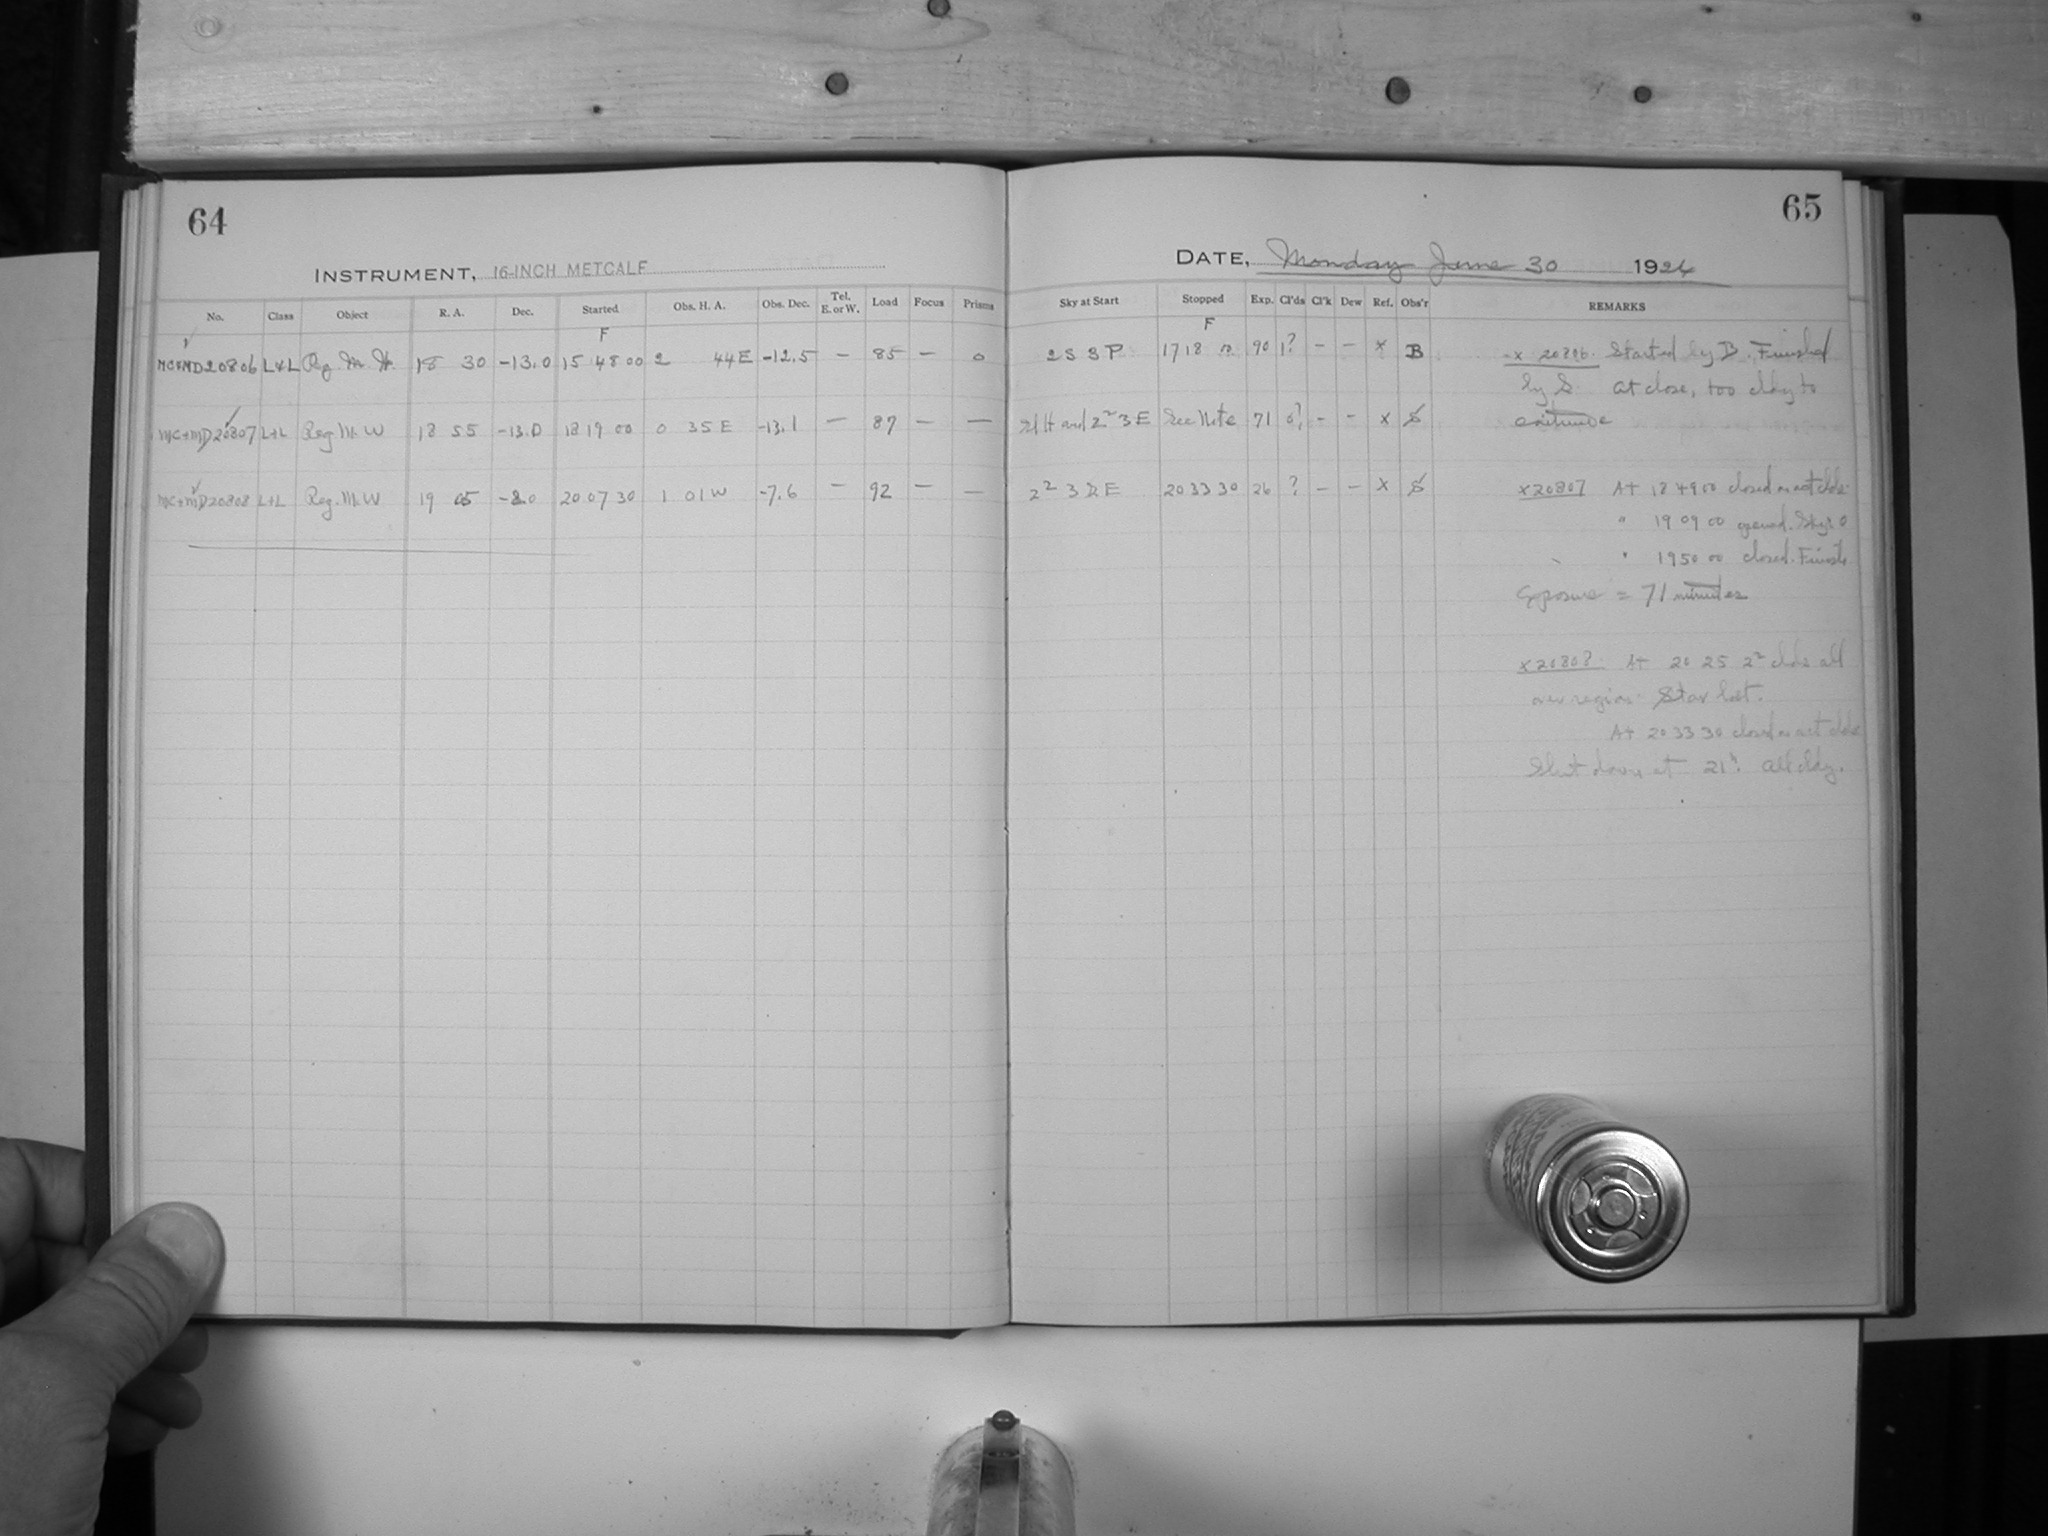 64
INSTRUMENT, 16-INCH METCALF
No. Class Object R. A. Dec. Started Obs. H. A. Obs. Dec. Tel. E. or W. Load Focus Prisms
F
MC+MD20806 L+L Reg M. W. 18 30 -13.0 15 48 00 2 44 E -12.5 — 85 — 0
MC+MD20807 L+L Reg M. W 18 55 -13.0 18 19 00 0 35 E -13.1 — 87 — —
MC+MD20808 L+L Reg. M. W 19 05 20 07 30 1 01 W -7.6 — 92 — —
65
DATE, Monday June 30 1924
Sky at Start Stopped Exp. Cl'ds Cl'k Dew Ref. Obs'r REMARKS
F
2 S 3 P 17 18 90 1? — — x B
and 2² 3 E See Note 71 0? — — x S
2² 3 E 20 33 30 26 ? — — x S
x 20806. Started by B. Finished
by S. at close, too cldy to
continue
x20807 At 18 49 00 closed
" 19 09 00 opened. Sky 0
" 19 50 00 closed.
Exposure = 71 minutes
x20808: At 20 25 2² clds all
over region. Star lost.
At 20 33 30 closed
Shut down at 21h. All cldy.